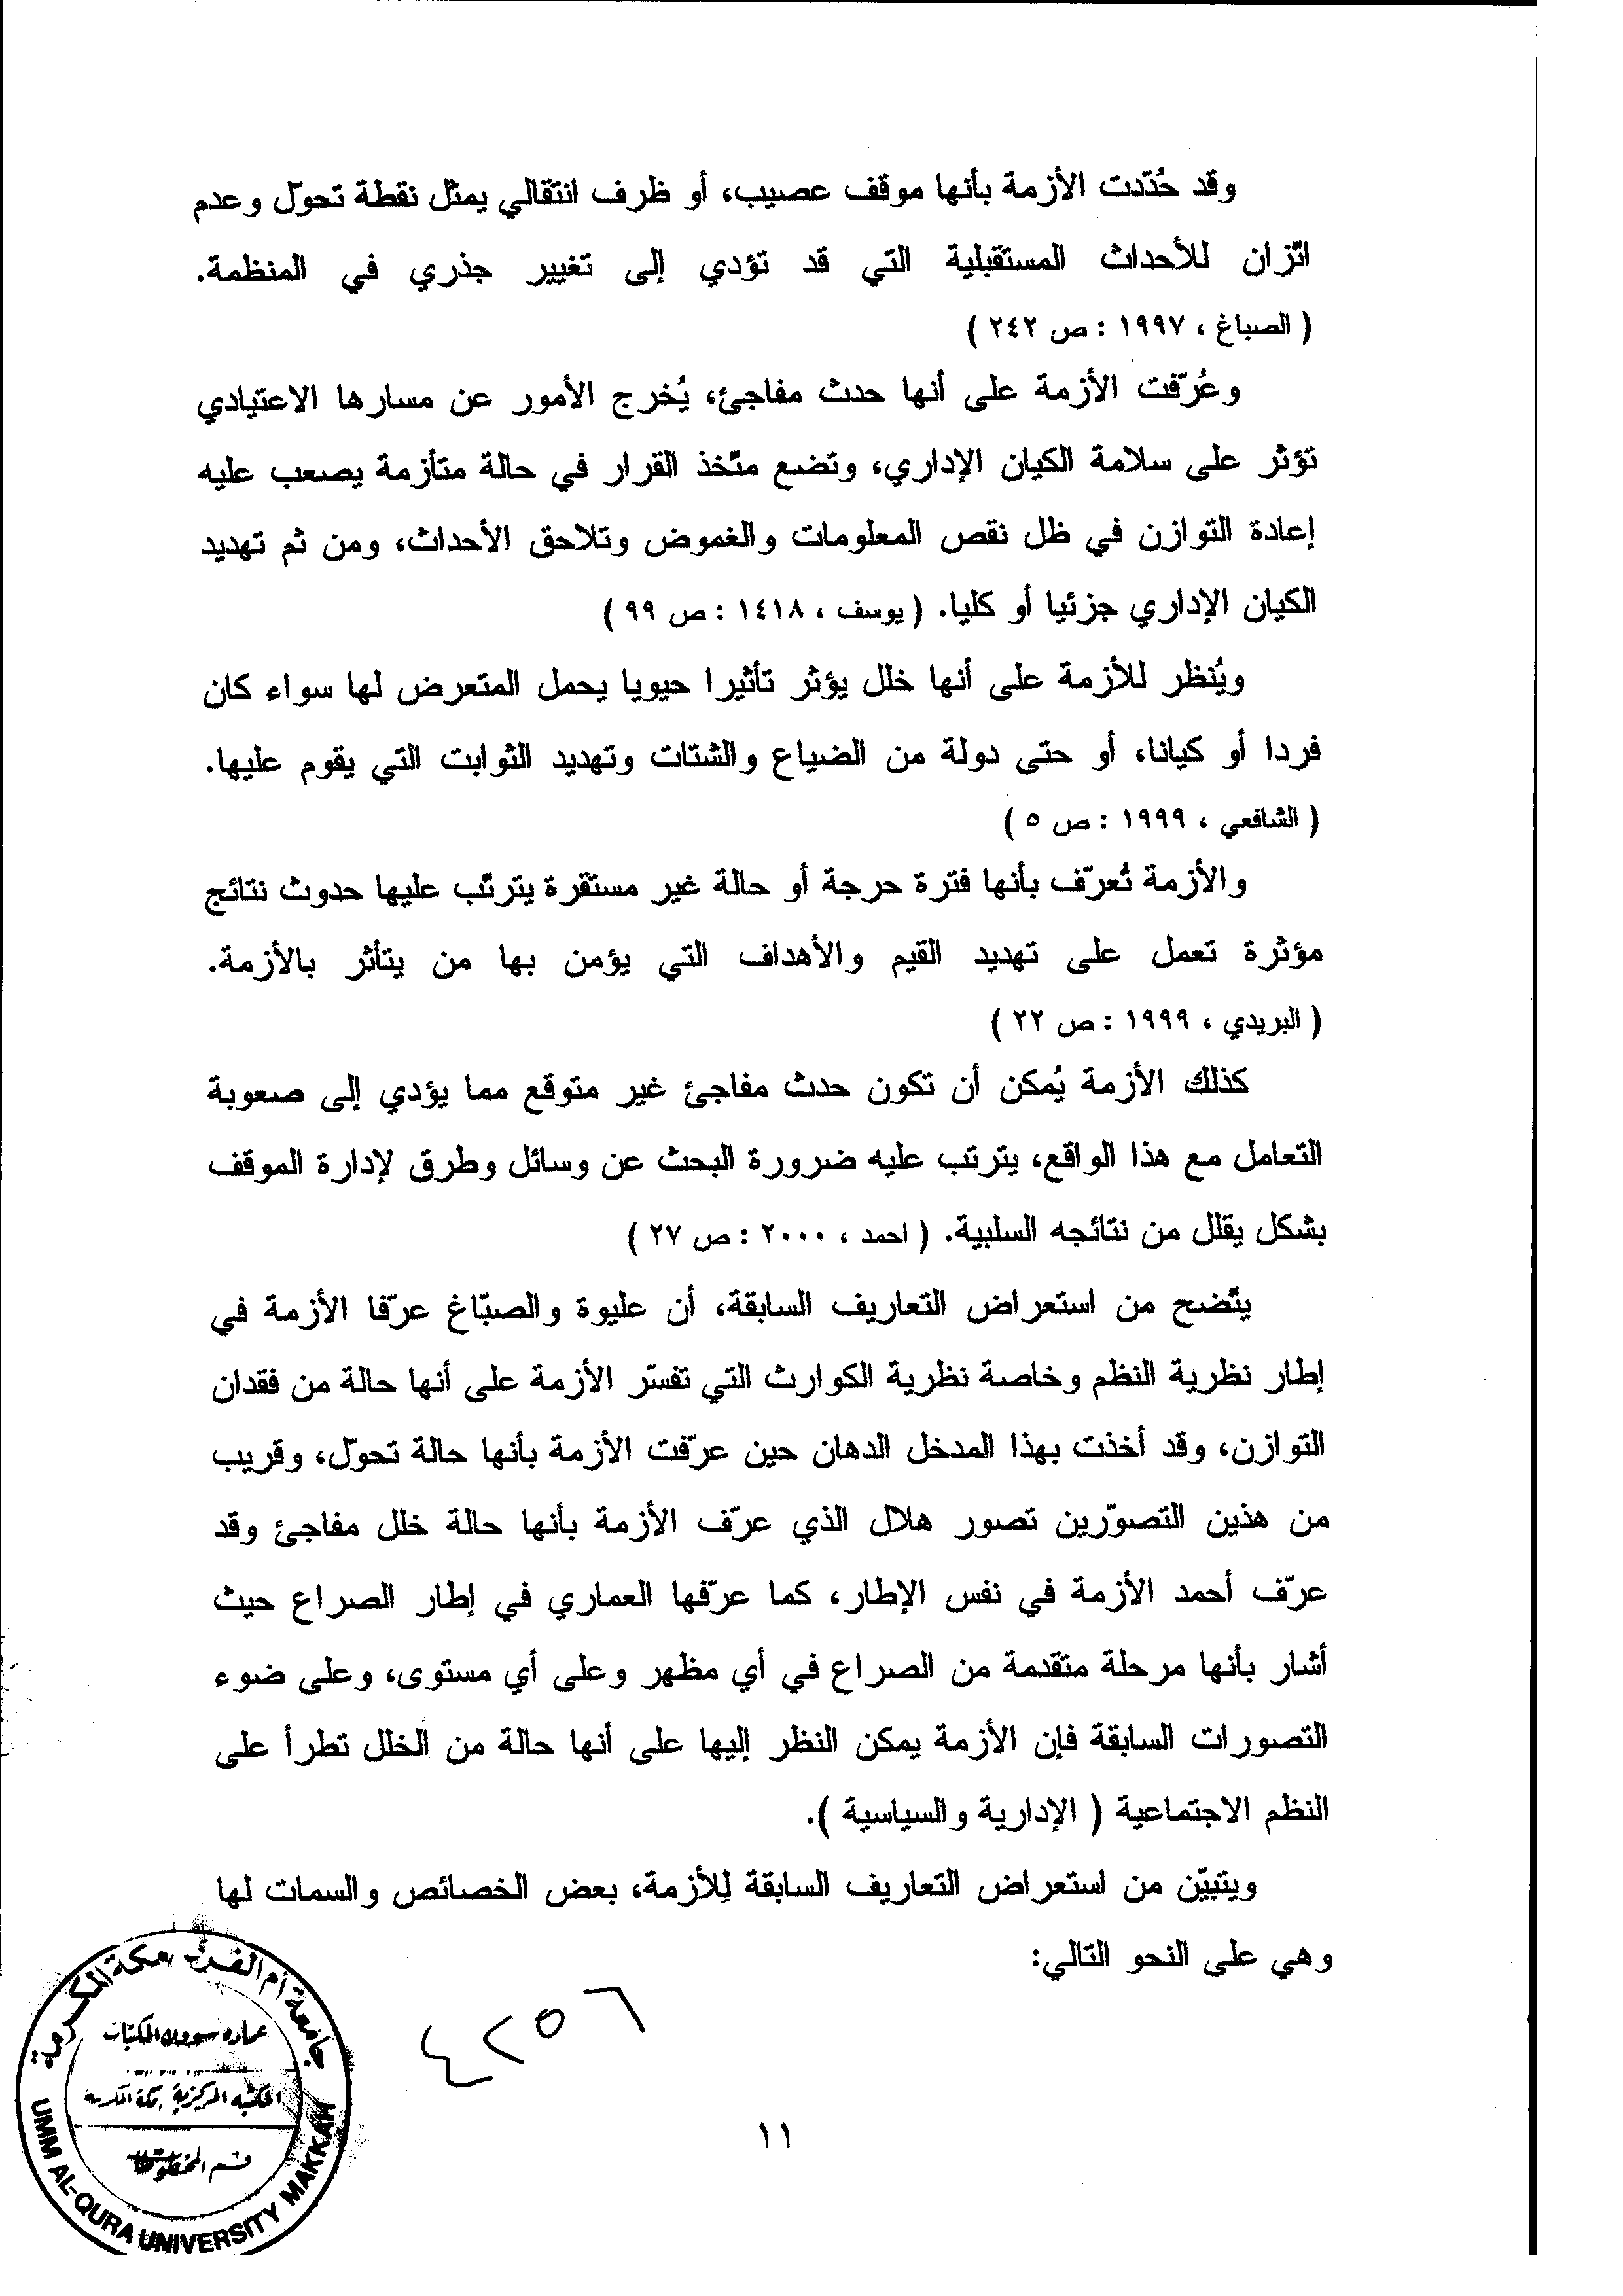 وقد حُدّدت الأزمة بأنها موقف عصيب، أو ظرف انتقالي يمثل نقطة تحوّل وعدم
اتّزان للأحداث المستقبلية التي قد تؤدي إلى تغيير جذري في المنظمة.
( الصباغ ، ١٩٩٧ : ص ٢٤٢ )
وعُرّفت الأزمة على أنها حدث مفاجئ، يُخرج الأمور عن مسارها الاعتيادي
تؤثر على سلامة الكيان الإداري، وتضع متّخذ القرار في حالة متأزمة يصعب عليه
إعادة التوازن في ظل نقص المعلومات والغموض وتلاحق الأحداث، ومن ثم تهديد
الكيان الإداري جزئيا أو كليا. ( يوسف ، ١٤١٨ : ص ٩٩ )
ويُنظر للأزمة على أنها خلل يؤثر تأثيرا حيويا يحمل المتعرض لها سواء كان
فردا أو كيانا، أو حتى دولة من الضياع والشتات وتهديد الثوابت التي يقوم عليها.
( الشافعي ، ١٩٩٩ : ص ٥ )
والأزمة تُعرّف بأنها فترة حرجة أو حالة غير مستقرة يترتّب عليها حدوث نتائج
مؤثرة تعمل على تهديد القيم والأهداف التي يؤمن بها من يتأثر بالأزمة.
( البريدي ، ١٩٩٩ : ص ٢٢ )
كذلك الأزمة يُمكن أن تكون حدث مفاجئ غير متوقع مما يؤدي إلى صعوبة
التعامل مع هذا الواقع، يترتب عليه ضرورة البحث عن وسائل وطرق لإدارة الموقف
بشكل يقلل من نتائجه السلبية. ( احمد ، ٢٠٠٠ : ص ٢٧ )
يتّضح من استعراض التعاريف السابقة، أن عليوة والصبّاغ عرّفا الأزمة في
إطار نظرية النظم وخاصة نظرية الكوارث التي تفسّر الأزمة على أنها حالة من فقدان
التوازن، وقد أخذت بهذا المدخل الدهان حين عرّفت الأزمة بأنها حالة تحوّل، وقريب
من هذين التصوّرين تصور هلال الذي عرّف الأزمة بأنها حالة خلل مفاجئ وقد
عرّف أحمد الأزمة في نفس الإطار، كما عرّفها العماري في إطار الصراع حيث
أشار بأنها مرحلة متقدمة من الصراع في أي مظهر وعلى أي مستوى، وعلى ضوء
التصورات السابقة فإن الأزمة يمكن النظر إليها على أنها حالة من الخلل تطرأ على
النظم الاجتماعية ( الإدارية والسياسية ).
ويتبيّن من استعراض التعاريف السابقة لِلأزمة، بعض الخصائص والسمات لها
وهي على النحو التالي:
٤٢٥٦
جامعة أم القرى بمكة المكرمة
عمادة شؤون المكتبات
المكتبة المركزية بمكة المكرمة
قسم المخطوطات
UMM AL-QURA UNIVERSITY MAKKAH
١١